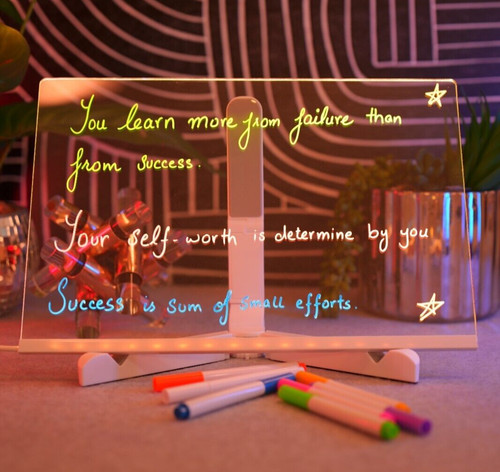 You learn more from failure than
from success.
Your self-worth is determine by you
Success is sum of small efforts.